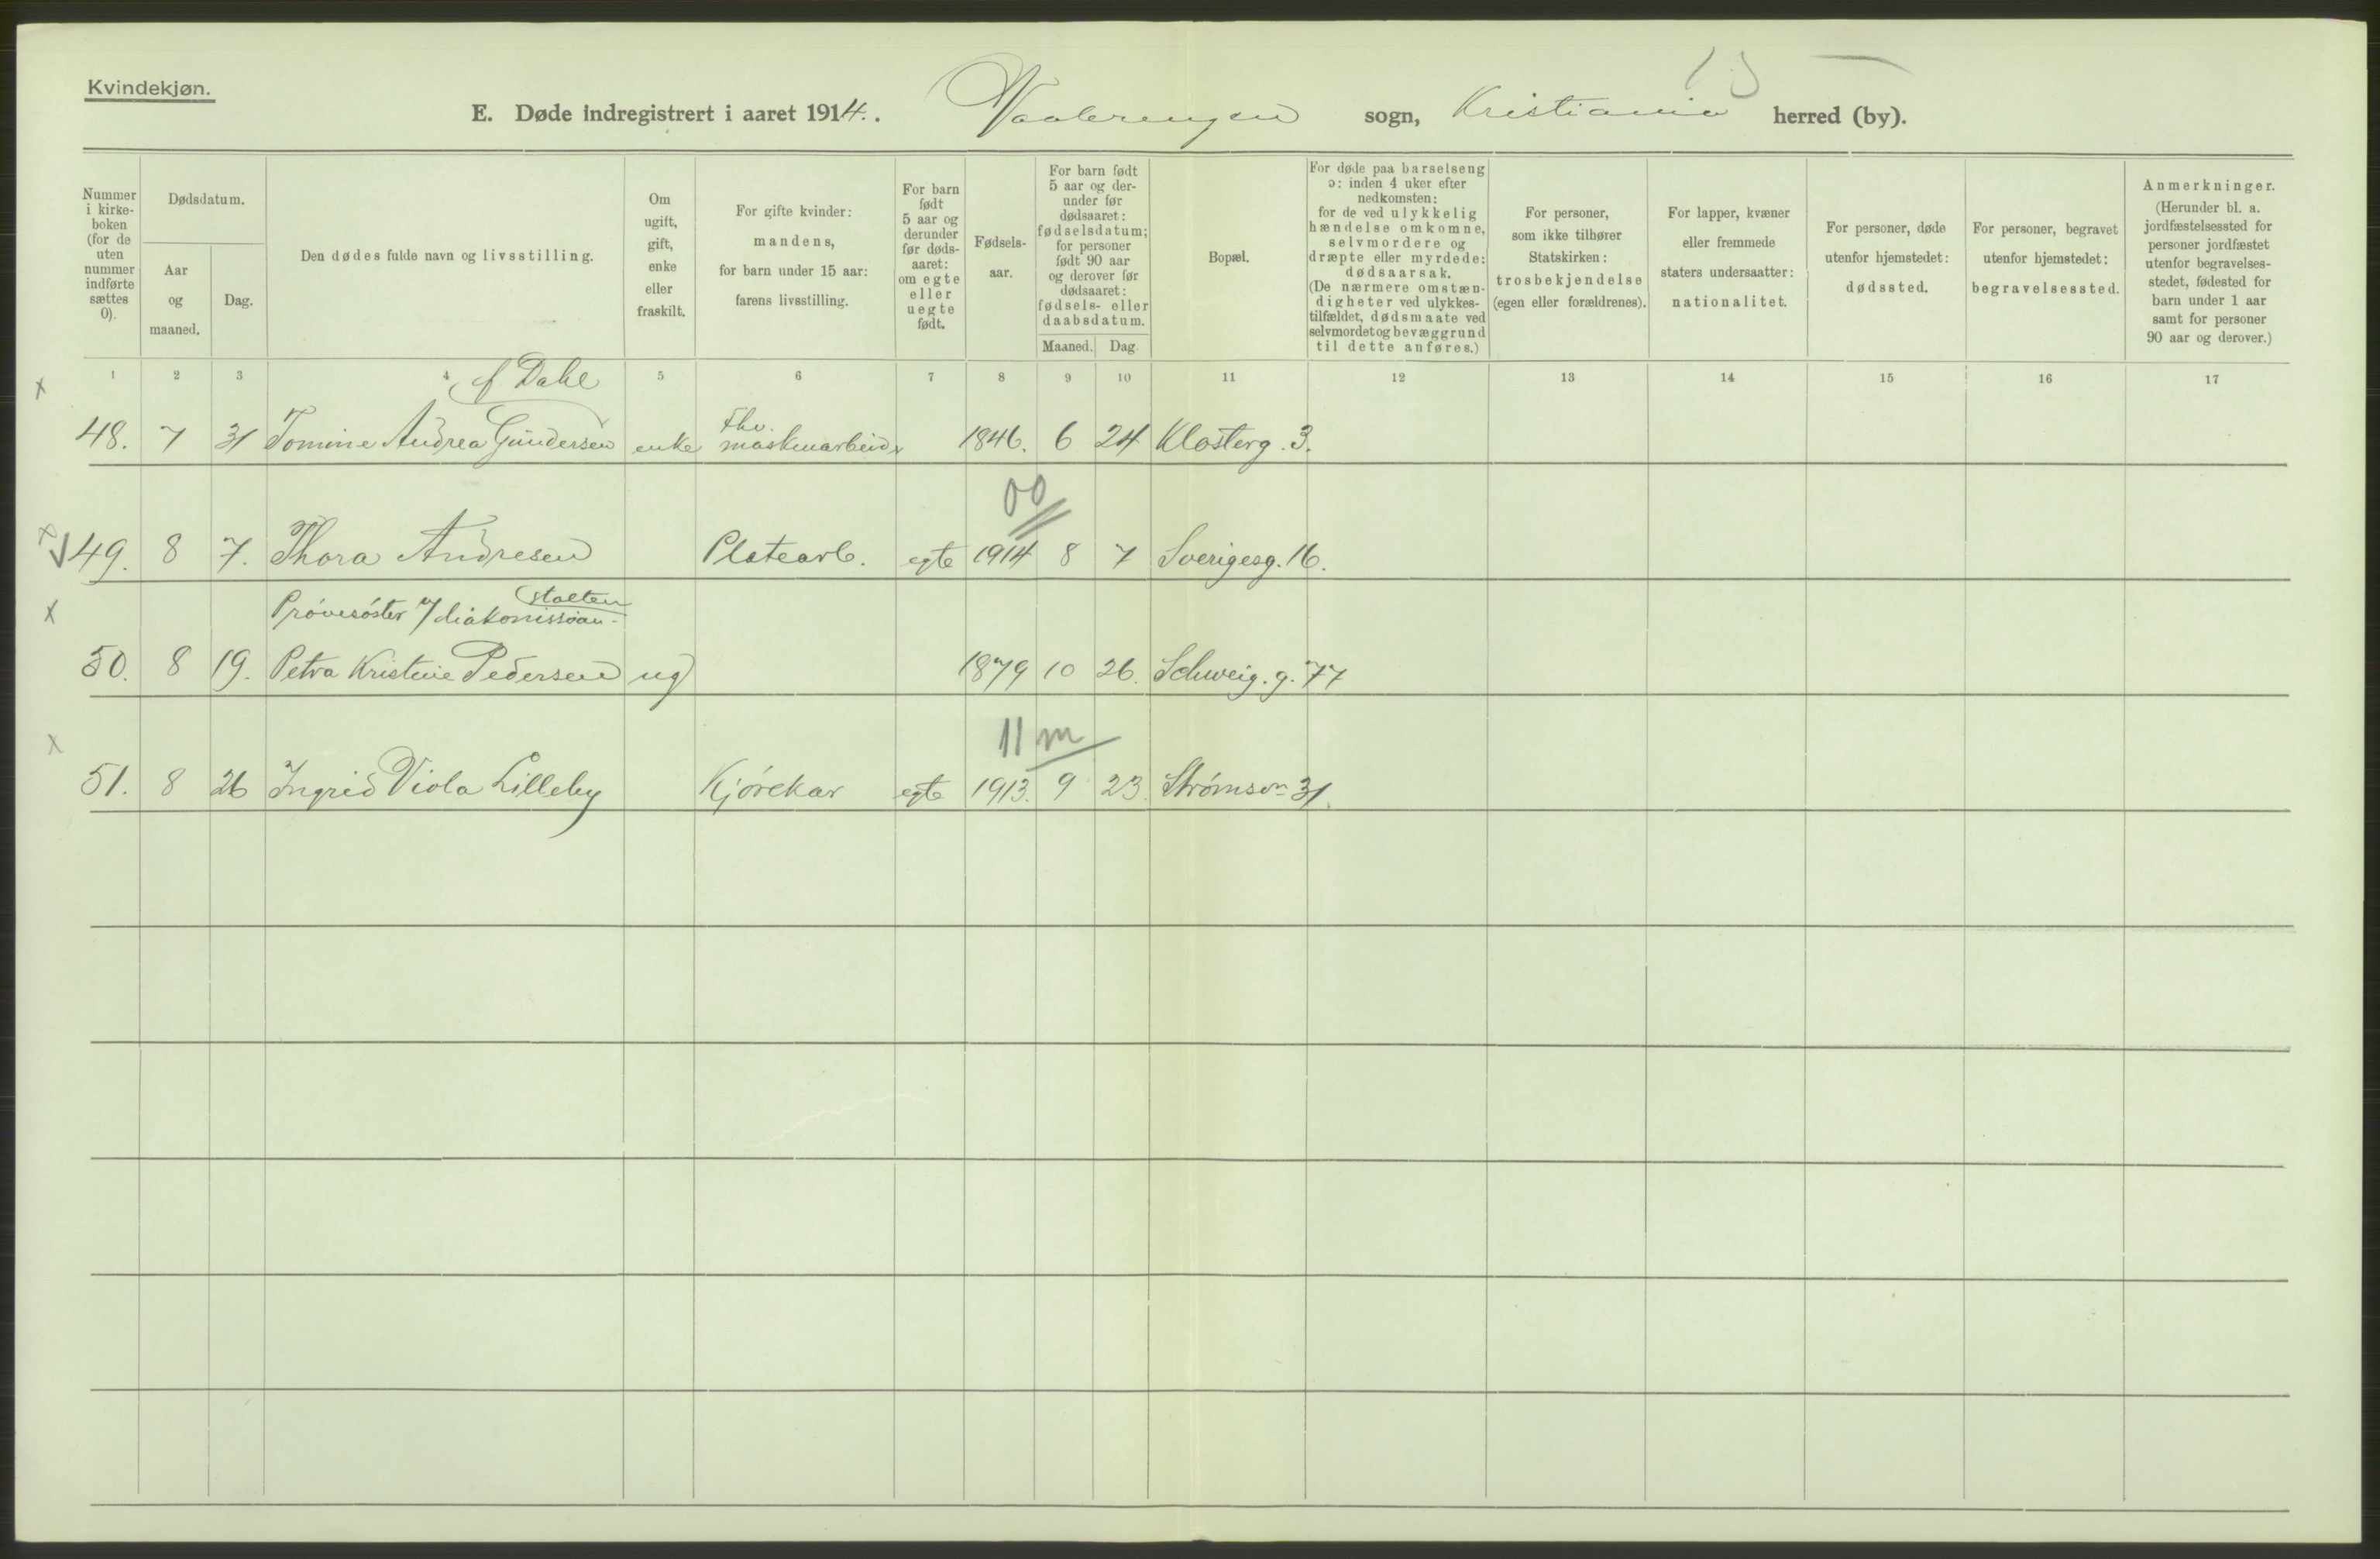 Kvindekjøn.
15
E. Døde indregistrert i aaret 1914. Vaalerengen sogn, Kristiania herred (by).
Nummer i kirke- boken (for de uten nummer indførte sættes 0).
Dødsdatum.
Aar og maaned.
Dag.
Den dødes fulde navn og livsstilling.
Om ugift, gift, enke eller fraskilt.
For gifte kvinder: mandens, for barn under 15 aar: farens livsstilling.
For barn født 5 aar og derunder før døds- aaret: om egte eller uegte født.
Fødsels- aar.
For barn født 5 aar og der- under før dødsaaret: fødselsdatum; for personer født 90 aar og derover før dødsaaret: fødsels- eller daabsdatum.
Maaned. Dag.
Bopæl.
For døde paa barselseng ɔ: inden 4 uker efter nedkomsten: for de ved ulykkelig hændelse omkomne, selvmordere og dræpte eller myrdede: dødsaarsak. (De nærmere omstæn- digheter ved ulykkes- tilfældet, dødsmaate ved selvmordet og bevæggrund til dette anføres.)
For personer, som ikke tilhører Statskirken: trosbekjendelse (egen eller forældrenes).
For lapper, kvæner eller fremmede staters undersaatter: nationalitet.
For personer, døde utenfor hjemstedet: dødssted.
For personer, begravet utenfor hjemstedet: begravelsessted.
Anmerkninger. (Herunder bl. a. jordfæstelsessted for personer jordfæstet utenfor begravelses- stedet, fødested for barn under 1 aar samt for personer 90 aar og derover.)
1 2 3 4 5 6 7 8 9 10 11 12 13 14 15 16 17
x f Dahl
48. 7 31 Tomine Andrea Gundersen enke Fhv. maskinarbeider 1846. 6 24 Klosterg. 3.
00
x 49. 8 7. Thora Andresen Platearb. egte 1914 8 7 Sverigesg. 16.
x Prøvesøster v/ diakonissean- stalten
50. 8 19. Petra Kristine Pedersen ug 1879 10 26. Schweig. g. 77
x 11 m
51. 8 26 Ingrid Viola Lilleby Kjørekar egte 1913. 9 23. Strømsvn 31.